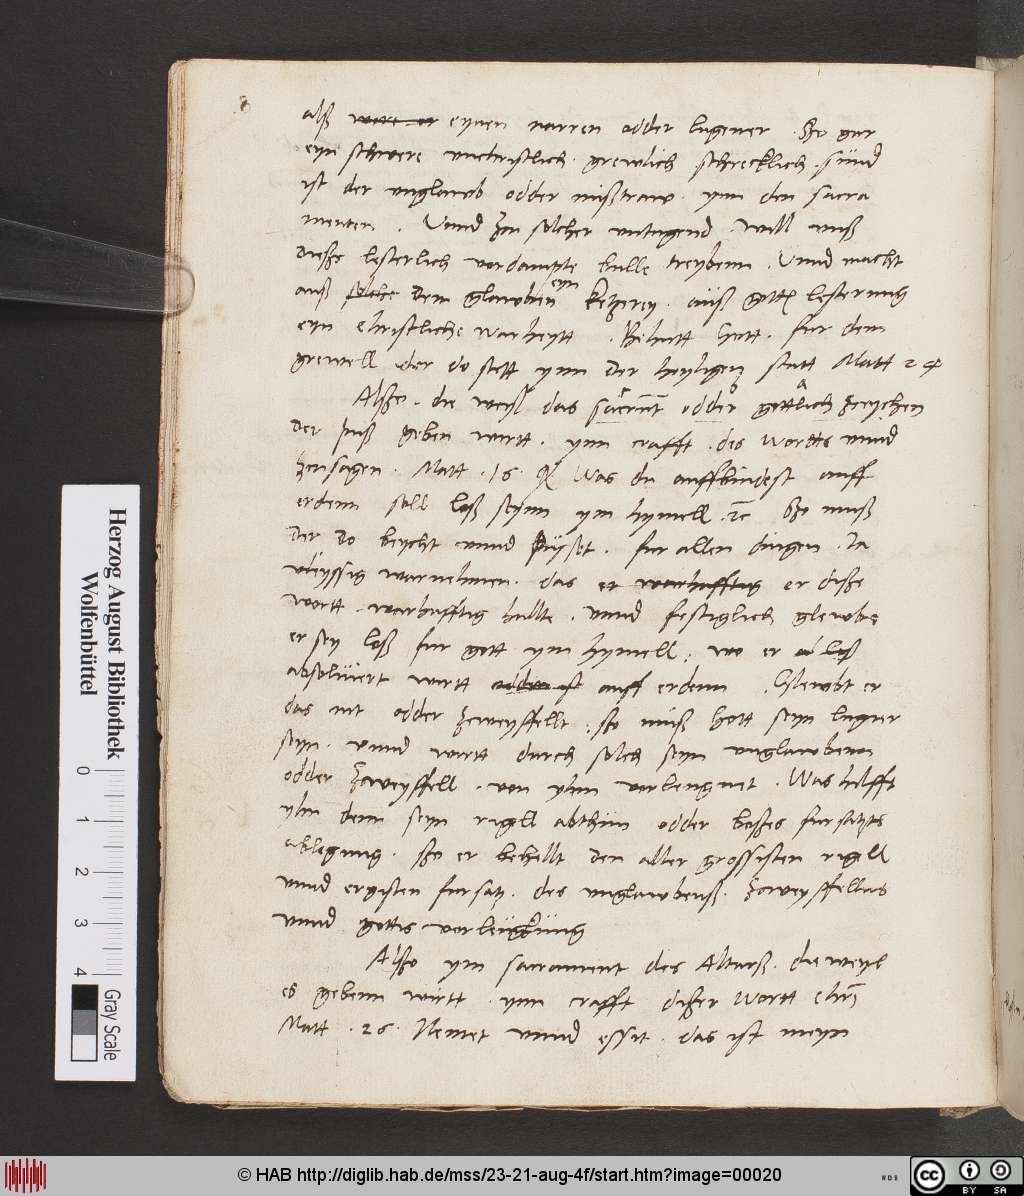 8
alß were er eynen narren odder lugener . Szo gar
eyn schwere unchristlich . grewlich . schrecklich . sünd
ist der unglawb odder mißtraw . ynn den sacra
menten . Unnd zcu solcher untugend . will unß
dieße lesterlich vordampte bulle treybenn . Unnd macht
auß solche dem glawben eyn ketzerey . auß gottis lesterung
eyn christliche warheytt . Behutt gott . fur dem
grewell der do stett ynn der heyligen statt Matt 24
Alßo . die weyl das sacrament odder gottlich zceychen
der puß geben wirtt . ynn crafft . des wortts unnd
zcusagen . Matt . 16 . Was du auffbindest auff
erdenn soll loß seynn ym hymell . 2c Szo muß
der do beycht unnd püsset . fur allen dingen . Ja
vleyssig warnehmen . das er warhafftig er diße
wortt . warhafftig hallte . unnd festiglich glewbe
er sey loß fur gott ym hymell . wo er loß
absolüiert wirtt odder ist auff erdenn . Glewbt er
das nit odder zcweyffellt . szo müß gott seyn lugner
seyn . unnd wirtt durch solch seyn unglawbenn
odder zcweyffell . von yhm vorleugnet . Was hilfft
yhn denn seyn rigell abthün odder boßes fursatzts
ablegung . szo er behellt den aller grossisten rigell
unnd ergisten fursatz . des unglawbens . zcweyffellns
unnd gottis vorleügküng
Alßo ym sacrament des Altarß . die weyl
es gebenn wirtt . ynn crafft dißer wortt chri
Matt . 26 . Nemet unnd essit . das ist meyn
Herzog August Bibliothek
Wolfenbüttel
0 1 2 3 4
Gray Scale
© HAB http://diglib.hab.de/mss/23-21-aug-4f/start.htm?image=00020
WDB
cc BY SA